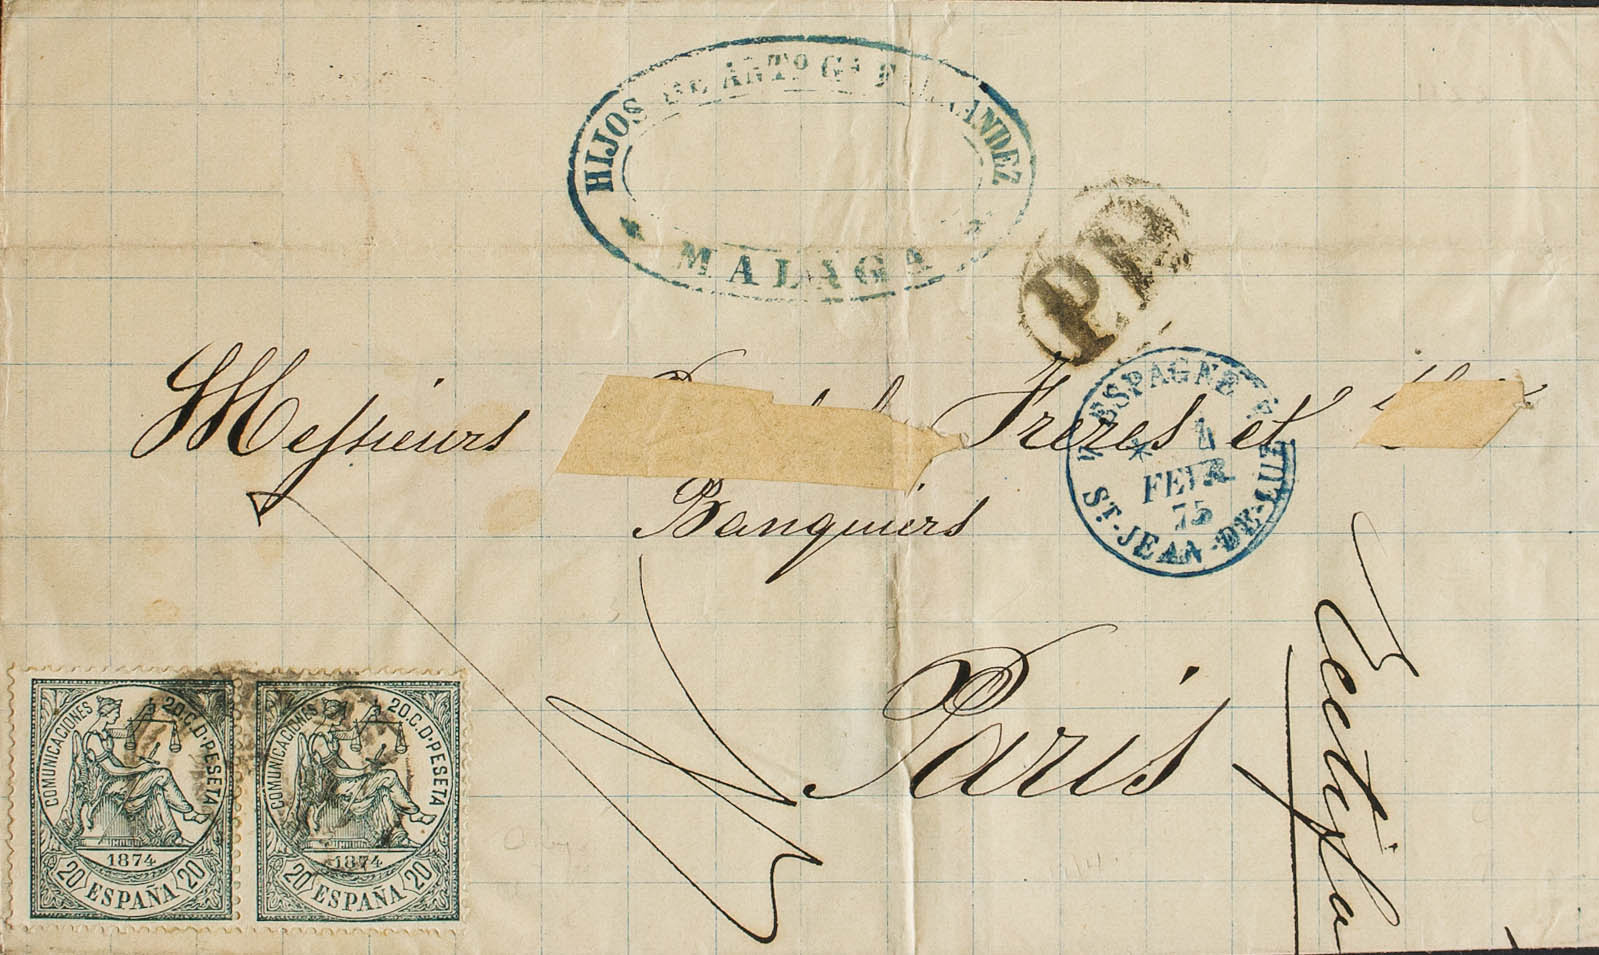 HIJOS DE ANTº Gª
MALAGA
PP
Messieurs Freres et
Banquiers
Paris
ESPAGNE
4
FEVR.
75
ST.-JEAN-DE-LUZ
COMUNICACIONES 20.C.D.PESETA
1874
20 ESPAÑA 20
COMUNICACIONES 20.C.D.PESETA
1874
20 ESPAÑA 20